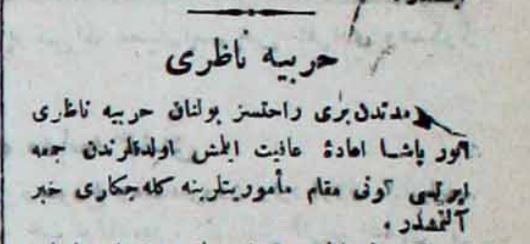 حربيه ناظری
مدتدنبری راحتسز بولنان حربيه ناظری
انور پاشا اعادهٔ عافيت ايلمش اولدقلرندن جمعه
ايرتسی كونی مقام مأموريتلرينه كله‌جكلری خبر
آلنمشدر .